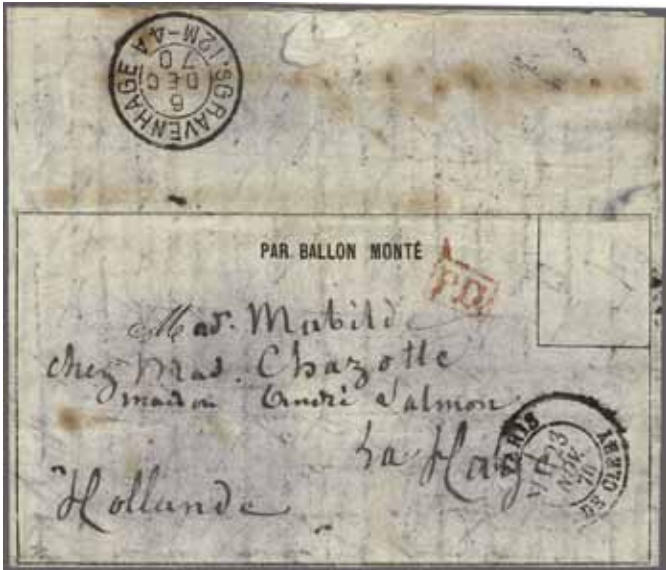 'SGRAVENHAGE
6
DEC
70
12M-4A
PAR BALLON MONTÉ
P.D.
Mad. Mabild
chez Mad. Chazotte
maison André Salmon
La Haye
Hollande
PARIS
23
NOV.
70
DE CLERY